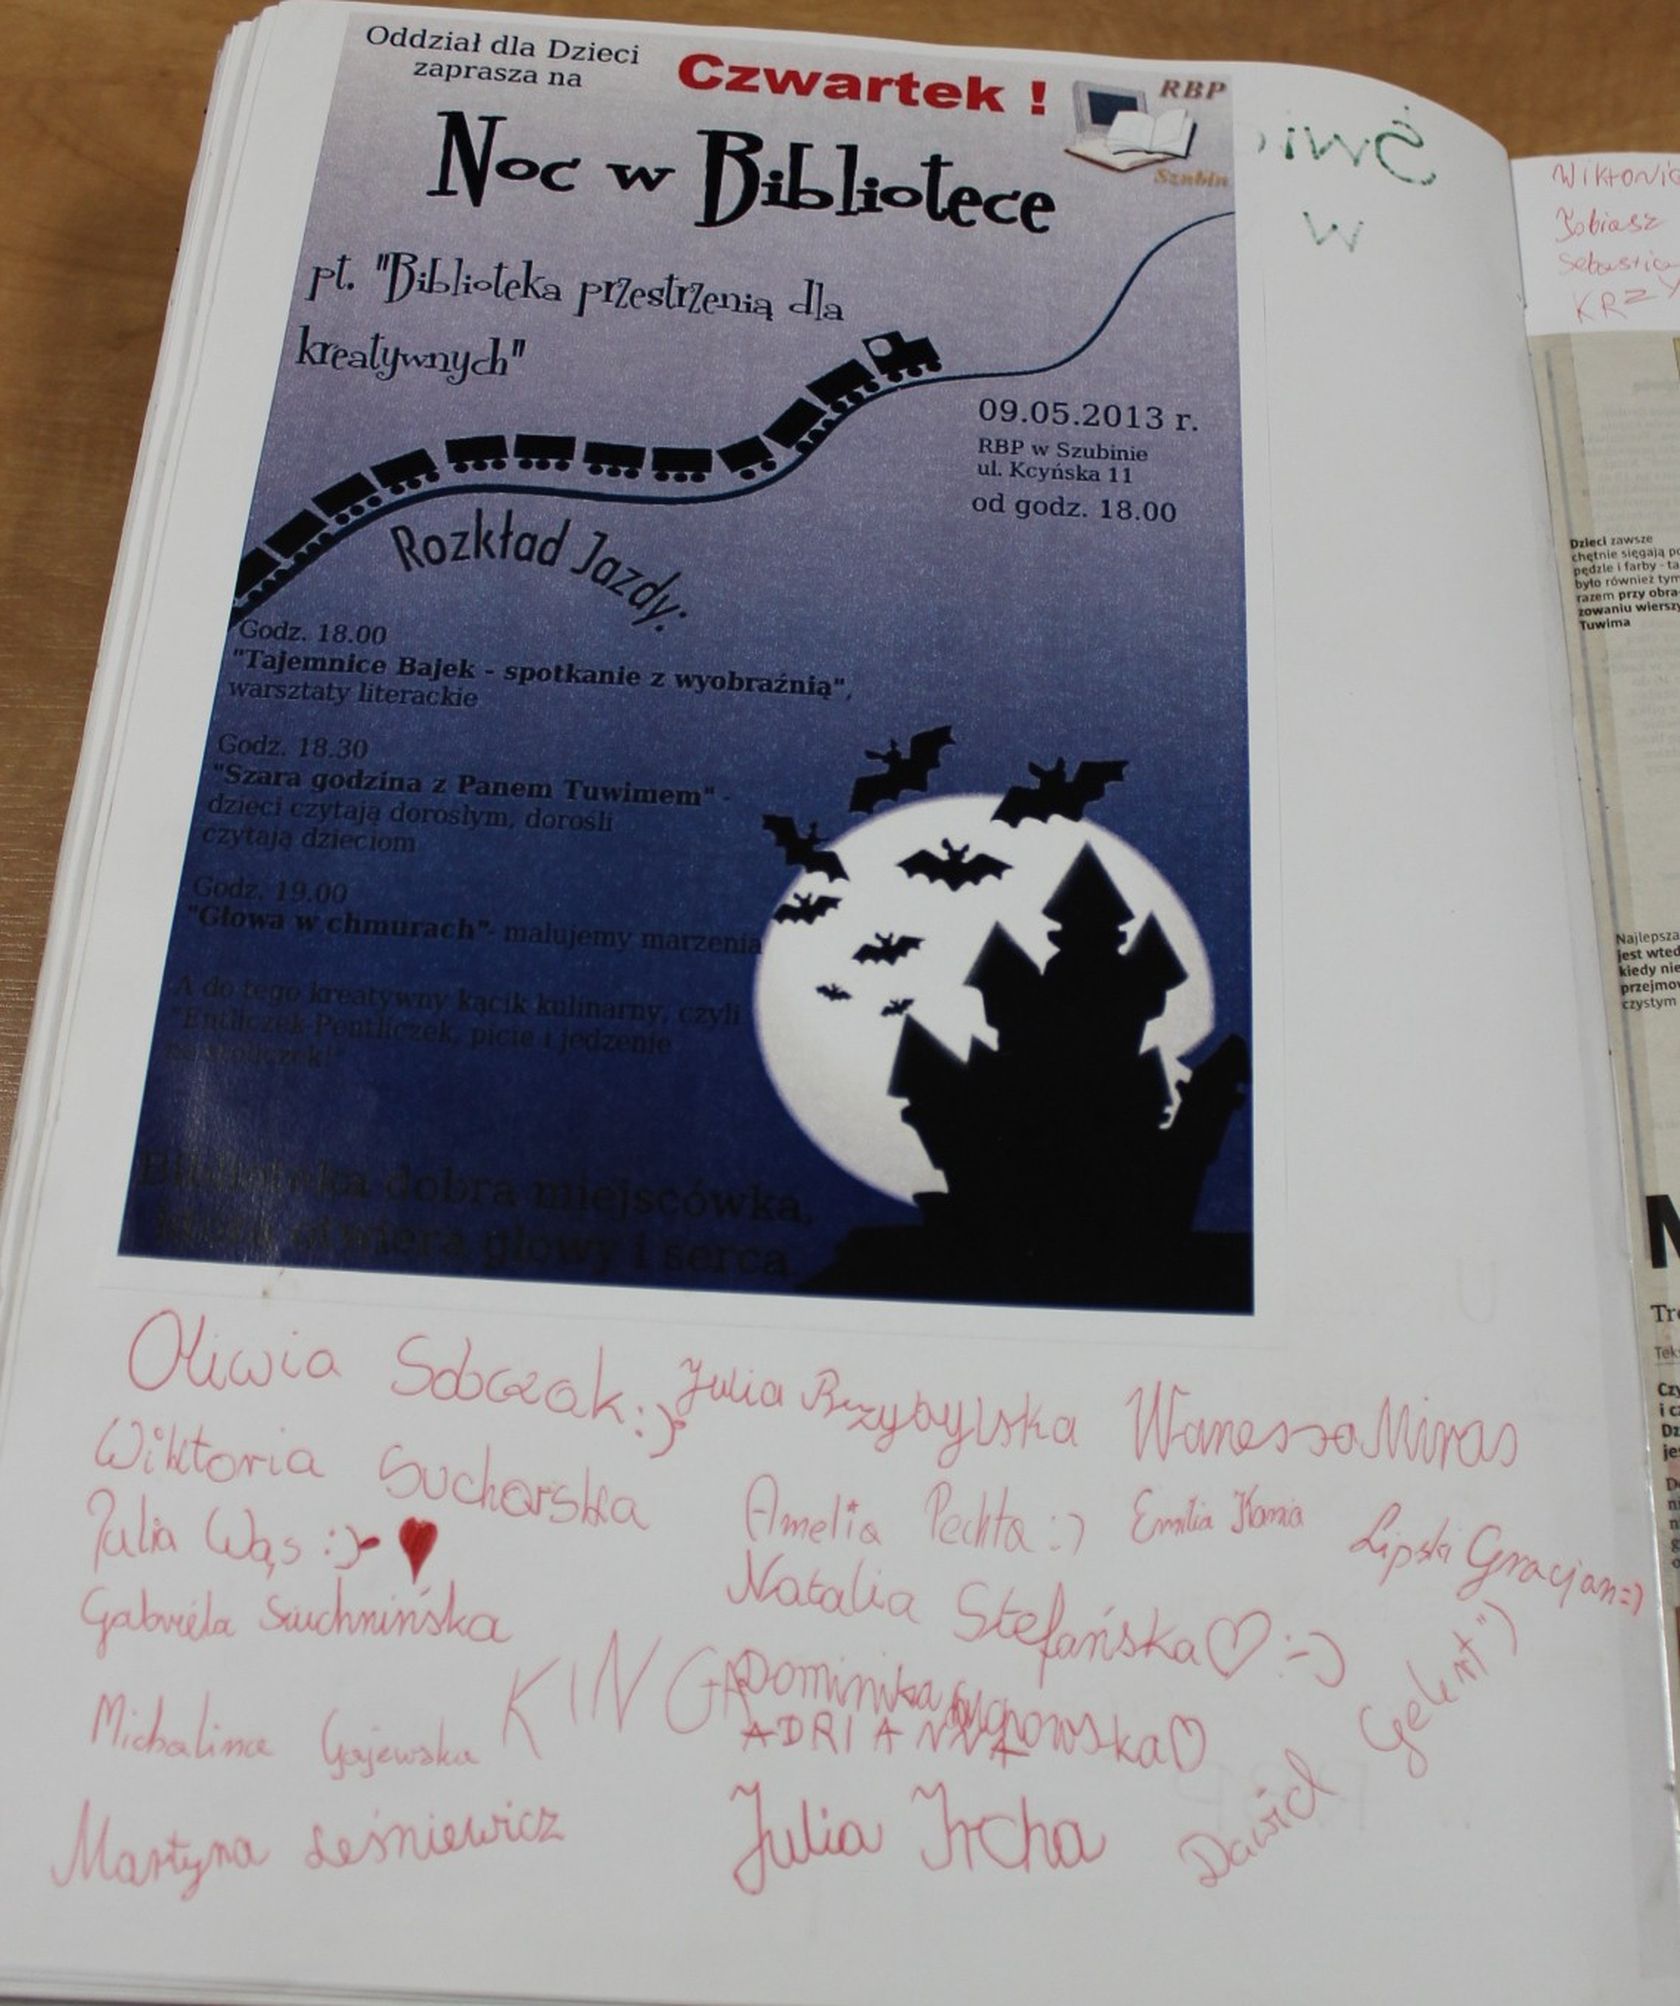 Oddział dla Dzieci
zaprasza na
Czwartek !
RBP
Szubin
Noc w Bibliotece
pt. "Biblioteka przestrzenią dla
kreatywnych"
09.05.2013 r.
RBP w Szubinie
ul. Kcyńska 11
od godz. 18.00
Rozkład Jazdy:
Godz. 18.00
"Tajemnice Bajek - spotkanie z wyobraźnią",
warsztaty literackie
Godz. 18.30
"Szara godzina z Panem Tuwimem" -
dzieci czytają dorosłym, dorośli
czytają dzieciom
Godz. 19.00
"Głowa w chmurach"- malujemy marzenia
A do tego kreatywny kącik kulinarny, czyli
"Entliczek-Pentliczek, picie i jedzenie
na stoliczek!"
Biblioteka dobra miejscówka,
która otwiera głowy i serca
Oliwia Sobczak :)
Julia Przybylska
Wanessa Miras
Wiktoria Sucharska
Amelia Pechta :)
Emilia Kania
Lipski Gracjan =)
Julia Wąs :)
Natalia Stefańska ♡ :-)
Gabriela
KINGA
Dominika
ADRIANNA
Michalina Gajewska
Dawid Gelert ")
Martyna Leśniewicz
Julia Ircha
Wiktoria
Tobiasz
Sebastia
KRZY
Dzieci zawsze
chętnie sięgają po
pędzle i farby - ta
było również tym
razem przy obra-
zowaniu wierszy
Tuwima
Najlepsza
jest wted
kiedy nie
przejmow
czystym